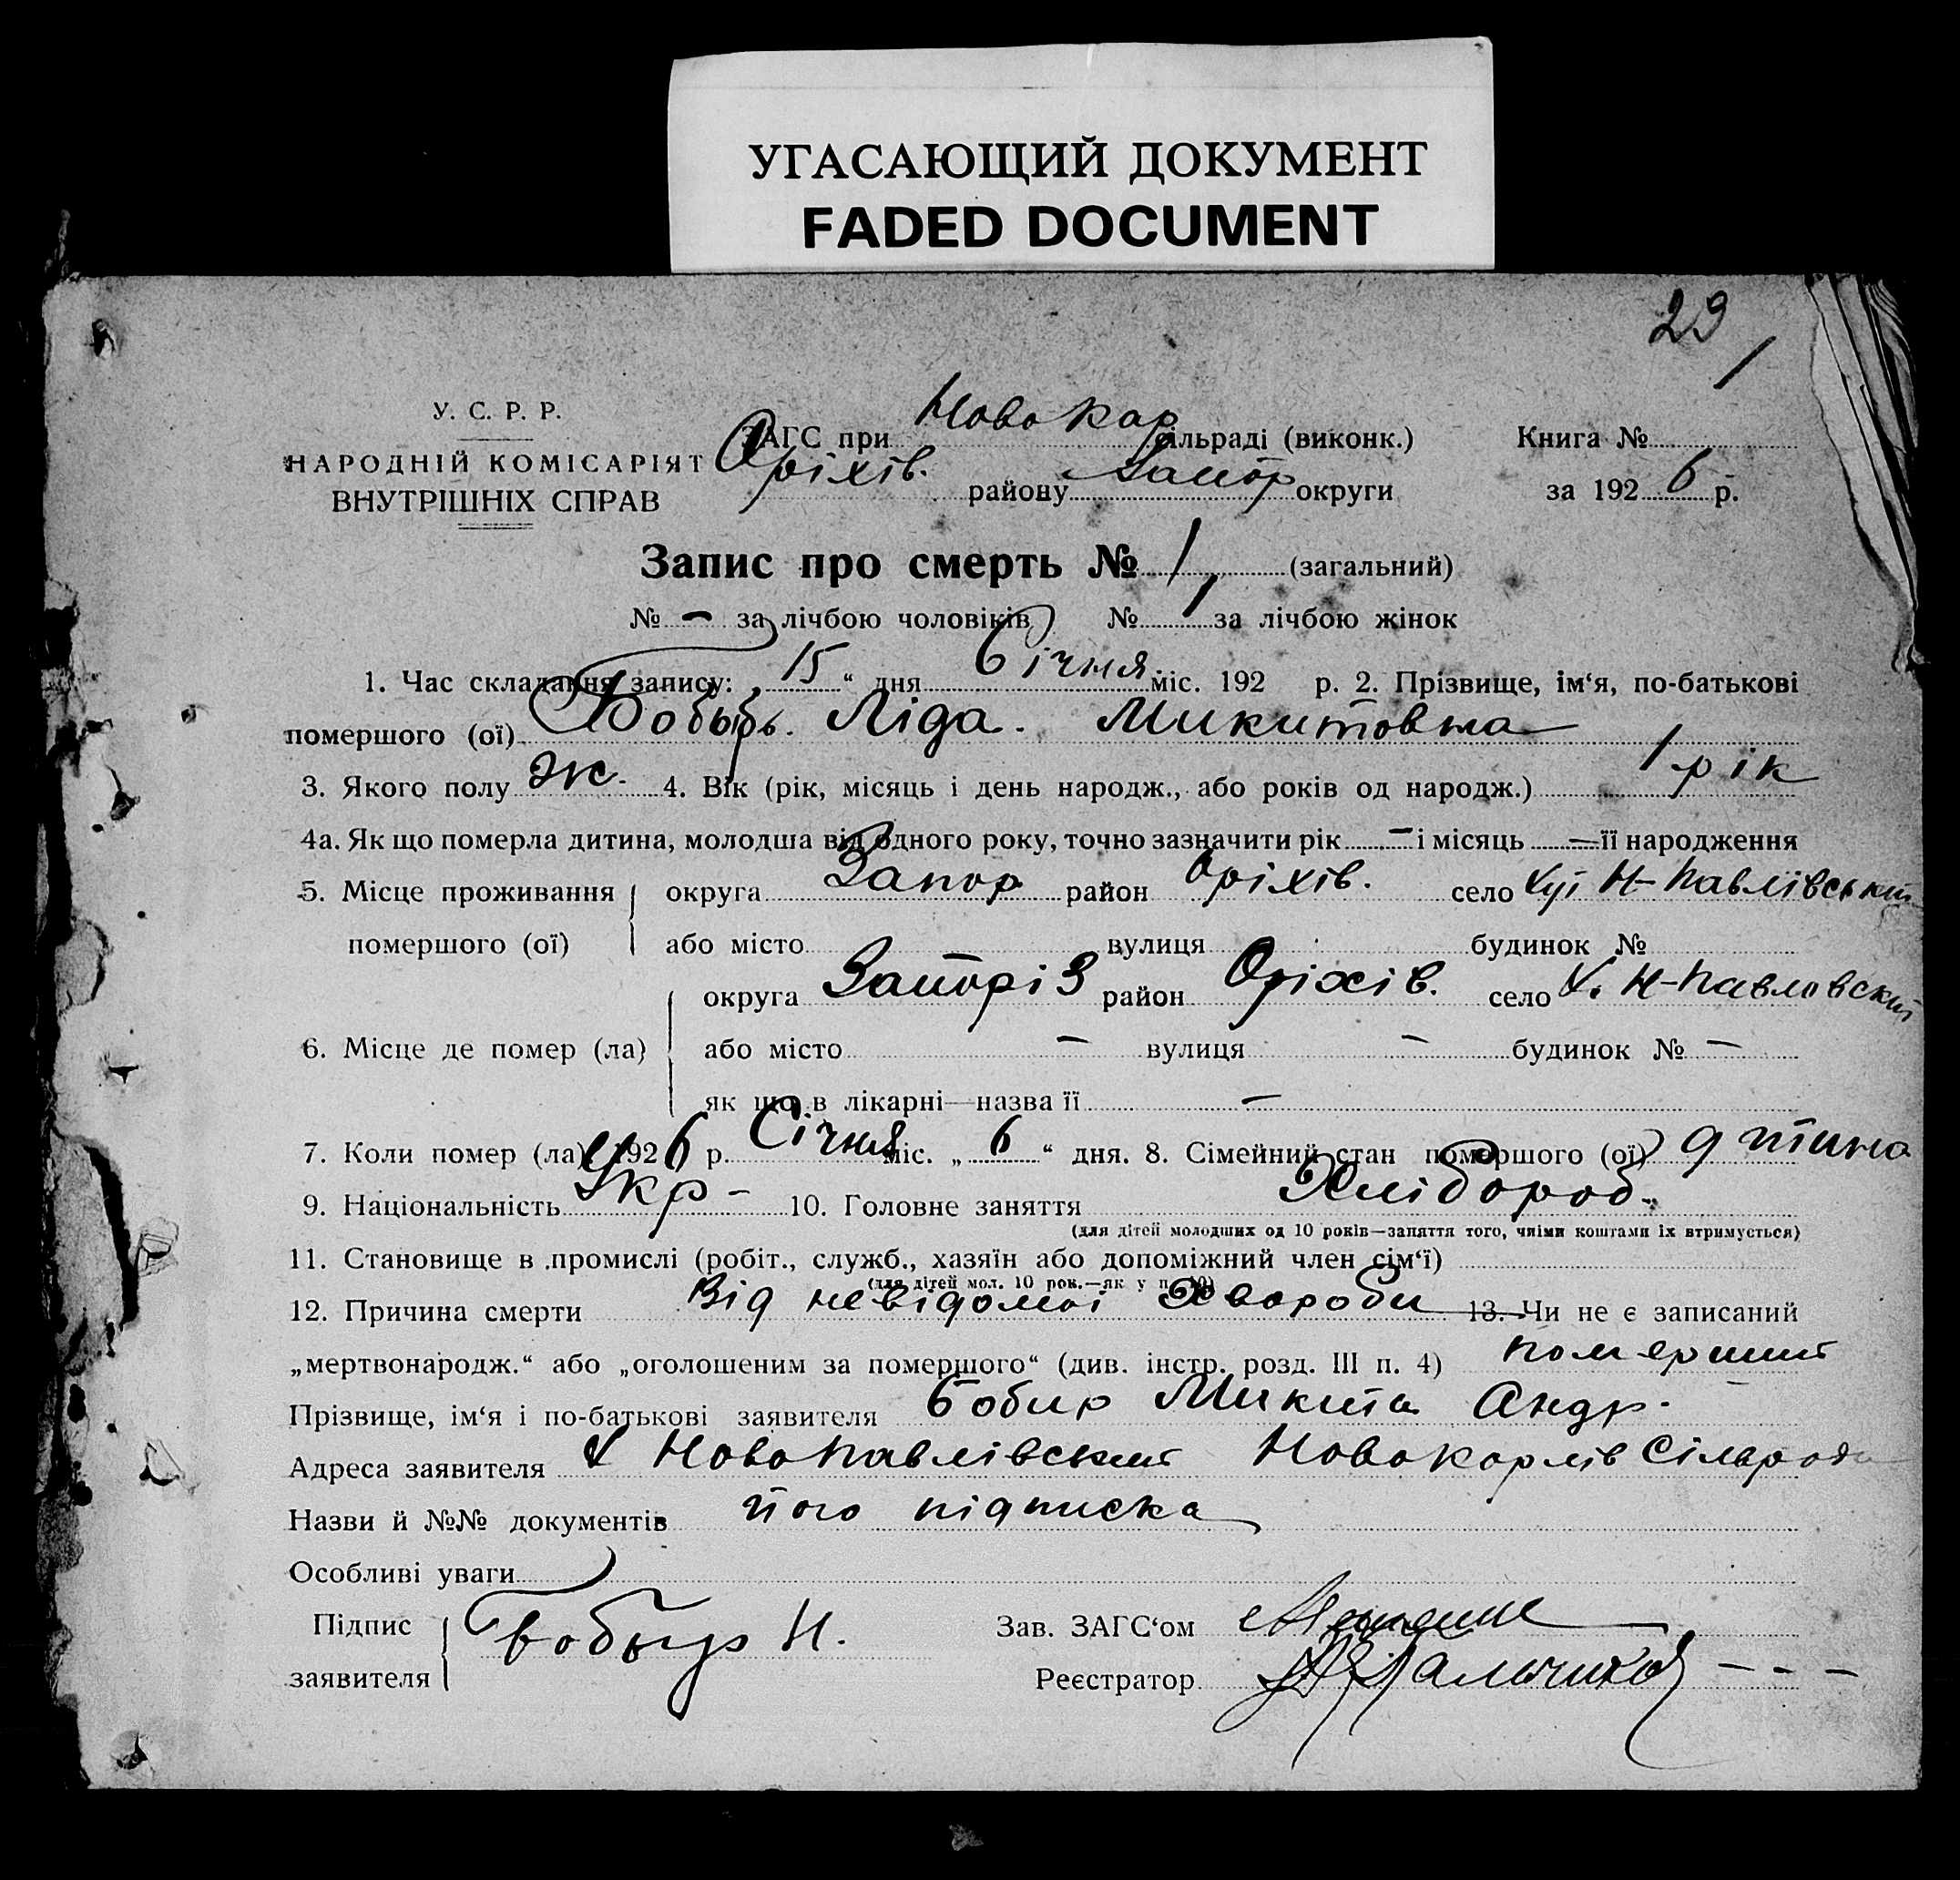 УГАСАЮЩИЙ ДОКУМЕНТ
FADED DOCUMENT
29
1
У. С. Р. Р.
НАРОДНІЙ КОМІСАРІЯТ
ВНУТРІШНІХ СПРАВ
ЗАГС при НовоКар сільраді (виконк.) Книга №
Оріхів. району Запор округи за 1926 р.
Запис про смерть № 1 (загальний)
№ - за лічбою чоловіків № 1 за лічбою жінок
1. Час складання запису: „15“ дня Січня міс. 192 р. 2. Прізвище, ім‘я, по-батькові
помершого (ої) Бобырь. Ліда. Микитовна
3. Якого полу Ж. 4. Вік (рік, місяць і день народж., або років од народж.) 1 рік
4а. Як що померла дитина, молодша від одного року, точно зазначити рік - і місяць - її народження
5. Місце проживання помершого (ої) округа Запор район Оріхів. село Хут Н-Павлівський
або місто вулиця будинок №
6. Місце де помер (ла) округа Запоріз район Оріхів. село Х. Н-Павловский
або місто - вулиця - будинок № -
як що в лікарні—назва її -
7. Коли помер (ла) 1926 р. Січня міс. „6“ дня. 8. Сімейний стан помершого (ої) дитина
9. Національність Укр- 10. Головне заняття Хлібороб.
(для дітей молодших од 10 років—заняття того, чиїми коштами їх втримується)
11. Становище в промислі (робіт., служб., хазяїн або допоміжний член сім‘ї)
(для дітей мол. 10 рок.—як у п. 10)
12. Причина смерти Від невідомоі Хвороби 13. Чи не є записаний
„мертвонародж.“ або „оголошеним за помершого“ (див. інстр. розд. III п. 4) померший
Прізвище, ім‘я і по-батькові заявителя Бобир Микита Андр.
Адреса заявителя Х НовоПавлівський НовоКарлів Сільради
Назви й №№ документів його підписка
Особливі уваги
Підпис заявителя Бобыр Н.
Зав. ЗАГС‘ом
Реєстратор